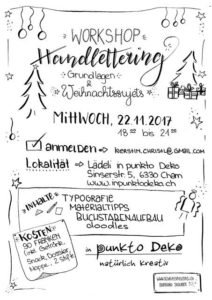 WORKSHOP
Handlettering
Grundlagen
&
Weihnachtssujets
MITTWOCH, 22.11.2017
18 bis 21
anmelden → @GMAIL.COM
Lokalität → Lädeli inpunkto Deko
Sinserstr. 5, 6330 Cham
www.inpunktodeko.ch
INHALTE
TYPOGRAFIE
MATERIALTIPPS
BUCHSTABENAUFBAU
doodles
KOSTEN
90 FRANKEN
inkl. Getränk,
Snack, Dossier,
Mappe, 2 Stifte
in punkto Deko
natürlich kreativ